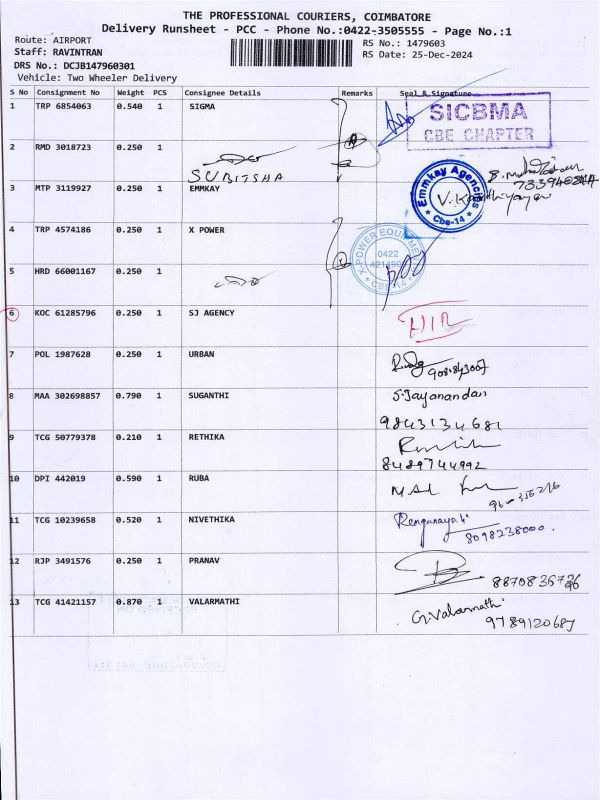 THE PROFESSIONAL COURIERS, COIMBATORE
Delivery Runsheet - PCC - Phone No.:0422-3505555 - Page No.:1
Route: AIRPORT
RS No.: 1479603
Staff: RAVINTRAN
RS Date: 25-Dec-2024
DRS No.: DCJB147960301
Vehicle: Two Wheeler Delivery
S No Consignment No Weight PCS Consignee Details Remarks Seal & Signature
1 TRP 6854063 0.540 1 SIGMA
SICBMA
CBE CHAPTER
2 RMD 3018723 0.250 1
SUBITSHA
3 MTP 3119927 0.250 1 EMMKAY
Emmkay Agencies
Cbe-14
V. Karthiyayan
4 TRP 4574186 0.250 1 X POWER
X POWER EQUIPMENT
0422
CBE-14
5 HRD 66001167 0.250 1
6 KOC 61285796 0.250 1 SJ AGENCY
7 POL 1987628 0.250 1 URBAN
8 MAA 302698857 0.790 1 SUGANTHI
S.Jayanandan
9843134681
9 TCG 50779378 0.210 1 RETHIKA
8489744992
10 DPI 442019 0.590 1 RUBA
11 TCG 10239658 0.520 1 NIVETHIKA
8098238000.
12 RJP 3491576 0.250 1 PRANAV
13 TCG 41421157 0.870 1 VALARMATHI
G.Valarmathi
9789120687